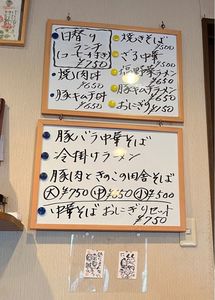 日替り
ランチ
(コーヒー付き)
¥750
・焼肉丼
¥650
・豚キムチ丼
¥650
・焼きそば
¥500
・ざる中華
¥500
ラーメン
¥650
・豚キムチラーメン
¥650
・おにぎり ¥150
・豚バラ中華そば
・冷掛けラーメン
・豚肉ときのこの田舎そば
大¥750 中¥650 小¥500
・中華そばおにぎりセット
¥750